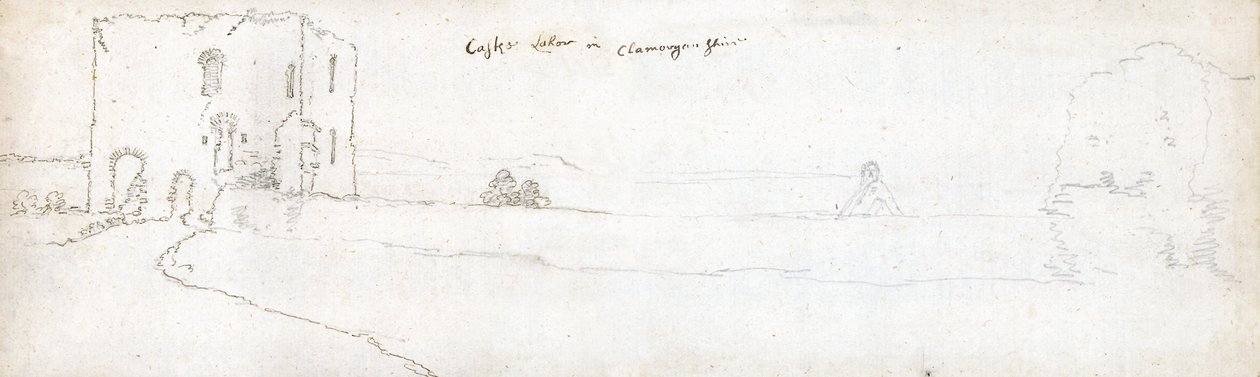 Castle Lahor in Clamorgan shire